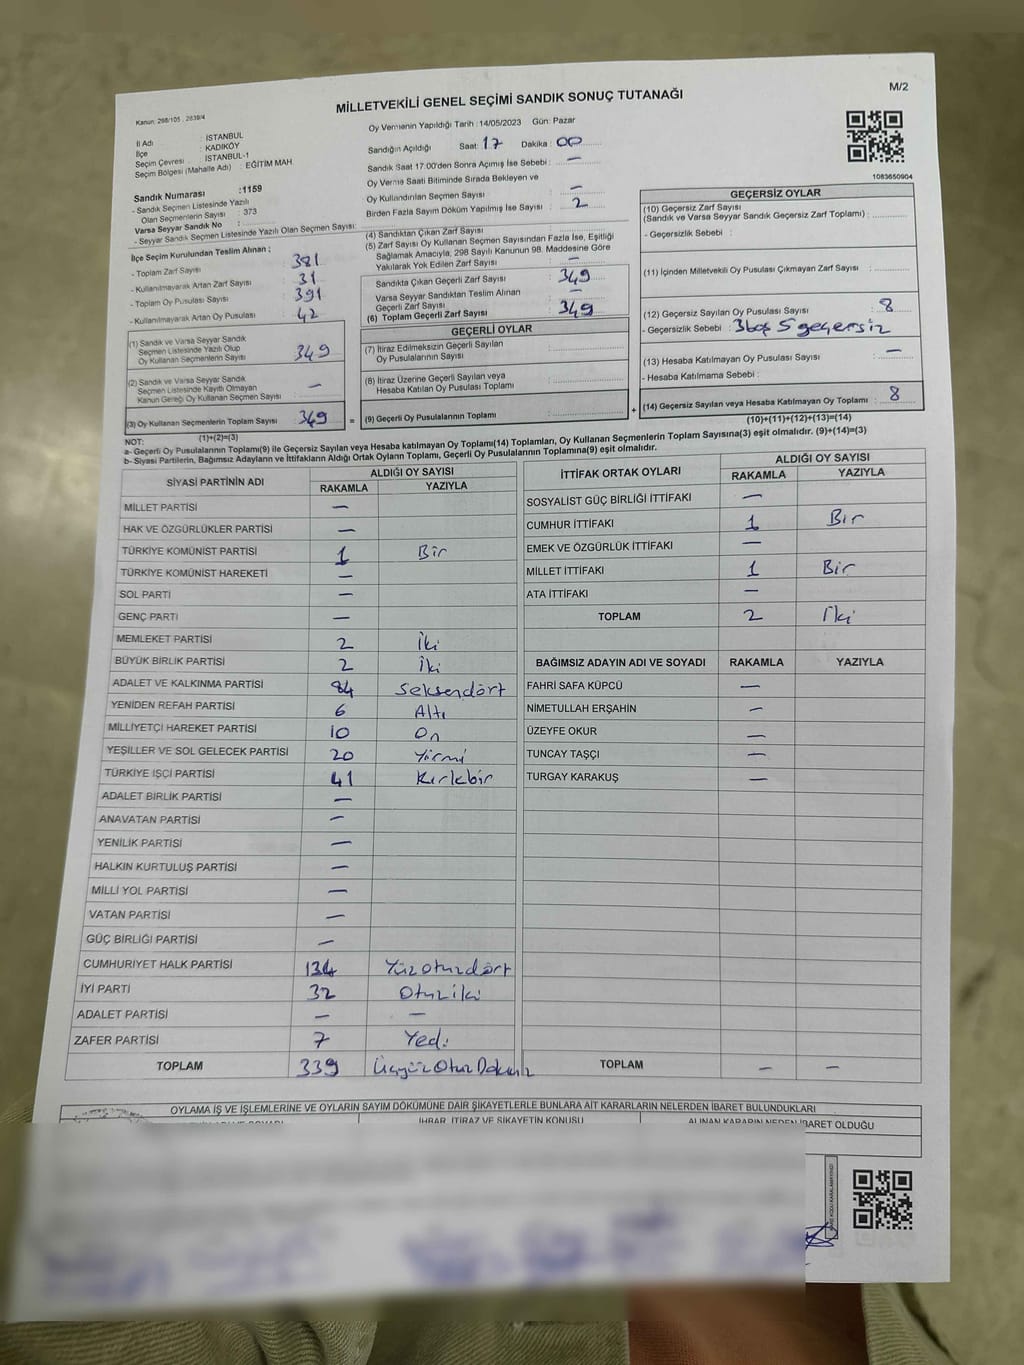 M/2
MİLLETVEKİLİ GENEL SEÇİMİ SANDIK SONUÇ TUTANAĞI
Kanun: 298/105 , 2839/4
İl Adı : İSTANBUL
İlçe : KADIKÖY
Seçim Çevresi : İSTANBUL-1
Seçim Bölgesi (Mahalle Adı) : EĞİTİM MAH
Sandık Numarası :1159
- Sandık Seçmen Listesinde Yazılı
Olan Seçmenlerin Sayısı : 373
Varsa Seyyar Sandık No :
- Seyyar Sandık Seçmen Listesinde Yazılı Olan Seçmen Sayısı:
İlçe Seçim Kurulundan Teslim Alınan :
- Toplam Zarf Sayısı 381
- Kullanılmayarak Artan Zarf Sayısı 31
- Toplam Oy Pusulası Sayısı 391
- Kullanılmayarak Artan Oy Pusulası 42
(1) Sandık ve Varsa Seyyar Sandık
Seçmen Listesinde Yazılı Olup
Oy Kullanan Seçmenlerin Sayısı 349
(2) Sandık ve Varsa Seyyar Sandık
Seçmen Listesinde Kayıtlı Olmayan
Kanun Gereği Oy Kullanan Seçmen Sayısı —
(3) Oy Kullanan Seçmenlerin Toplam Sayısı 349 =
(1)+(2)=(3)
Oy Vermenin Yapıldığı Tarih :14/05/2023 Gün: Pazar
Sandığın Açıldığı Saat: 17 Dakika : 00
Sandık Saat 17.00'den Sonra Açılmış İse Sebebi : —
Oy Verme Saati Bitiminde Sırada Bekleyen ve
Oy Kullandırılan Seçmen Sayısı —
Birden Fazla Sayım Döküm Yapılmış İse Sayısı : 2
(4) Sandıktan Çıkan Zarf Sayısı :
(5) Zarf Sayısı Oy Kullanan Seçmen Sayısından Fazla İse, Eşitliği
Sağlamak Amacıyla, 298 Sayılı Kanunun 98. Maddesine Göre
Yakılarak Yok Edilen Zarf Sayısı —
Sandıkta Çıkan Geçerli Zarf Sayısı 349
Varsa Seyyar Sandıktan Teslim Alınan
Geçerli Zarf Sayısı —
(6) Toplam Geçerli Zarf Sayısı : 349
GEÇERLİ OYLAR
(7) İtiraz Edilmeksizin Geçerli Sayılan
Oy Pusulalarının Sayısı :
(8) İtiraz Üzerine Geçerli Sayılan veya
Hesaba Katılan Oy Pusulası Toplamı :
(9) Geçerli Oy Pusulalarının Toplamı : +
1083650904
GEÇERSİZ OYLAR
(10) Geçersiz Zarf Sayısı
(Sandık ve Varsa Seyyar Sandık Geçersiz Zarf Toplamı) :
- Geçersizlik Sebebi :
(11) İçinden Milletvekili Oy Pusulası Çıkmayan Zarf Sayısı :
(12) Geçersiz Sayılan Oy Pusulası Sayısı : 8
- Geçersizlik Sebebi : 3boş 5 geçersiz
(13) Hesaba Katılmayan Oy Pusulası Sayısı : —
- Hesaba Katılmama Sebebi :
(14) Geçersiz Sayılan veya Hesaba Katılmayan Oy Toplamı : 8
(10)+(11)+(12)+(13)=(14)
NOT:
a- Geçerli Oy Pusulalarının Toplamı(9) ile Geçersiz Sayılan veya Hesaba katılmayan Oy Toplamı(14) Toplamları, Oy Kullanan Seçmenlerin Toplam Sayısına(3) eşit olmalıdır. (9)+(14)=(3)
b- Siyasi Partilerin, Bağımsız Adayların ve İttifakların Aldığı Ortak Oyların Toplamı, Geçerli Oy Pusulalarının Toplamına(9) eşit olmalıdır.
SİYASİ PARTİNİN ADI ALDIĞI OY SAYISI
RAKAMLA YAZIYLA
MİLLET PARTİSİ —
HAK VE ÖZGÜRLÜKLER PARTİSİ —
TÜRKİYE KOMÜNİST PARTİSİ 1 Bir
TÜRKİYE KOMÜNİST HAREKETİ —
SOL PARTİ —
GENÇ PARTİ —
MEMLEKET PARTİSİ 2 İki
BÜYÜK BİRLİK PARTİSİ 2 İki
ADALET VE KALKINMA PARTİSİ 84 Seksendört
YENİDEN REFAH PARTİSİ 6 Altı
MİLLİYETÇİ HAREKET PARTİSİ 10 On
YEŞİLLER VE SOL GELECEK PARTİSİ 20 Yirmi
TÜRKİYE İŞÇİ PARTİSİ 41 Kırkbir
ADALET BİRLİK PARTİSİ —
ANAVATAN PARTİSİ —
YENİLİK PARTİSİ —
HALKIN KURTULUŞ PARTİSİ —
MİLLİ YOL PARTİSİ —
VATAN PARTİSİ —
GÜÇ BİRLİĞİ PARTİSİ —
CUMHURİYET HALK PARTİSİ 134 Yüzotuzdört
İYİ PARTİ 32 Otuziki
ADALET PARTİSİ — —
ZAFER PARTİSİ 7 Yedi
TOPLAM 339 ÜçyüzOtuzDokuz
İTTİFAK ORTAK OYLARI ALDIĞI OY SAYISI
RAKAMLA YAZIYLA
SOSYALİST GÜÇ BİRLİĞİ İTTİFAKI —
CUMHUR İTTİFAKI 1 Bir
EMEK VE ÖZGÜRLÜK İTTİFAKI —
MİLLET İTTİFAKI 1 Bir
ATA İTTİFAKI —
TOPLAM 2 İki
BAĞIMSIZ ADAYIN ADI VE SOYADI RAKAMLA YAZIYLA
FAHRİ SAFA KÜPCÜ —
NİMETULLAH ERŞAHİN —
ÜZEYFE OKUR —
TUNCAY TAŞÇI —
TURGAY KARAKUŞ —
TOPLAM — —
OYLAMA İŞ VE İŞLEMLERİNE VE OYLARIN SAYIM DÖKÜMÜNE DAİR ŞİKAYETLERLE BUNLARA AİT KARARLARIN NELERDEN İBARET BULUNDUKLARI
İHBAR, İTİRAZ VE ŞİKAYETİN KONUSU ALINAN KARARIN NEDEN İBARET OLDUĞU